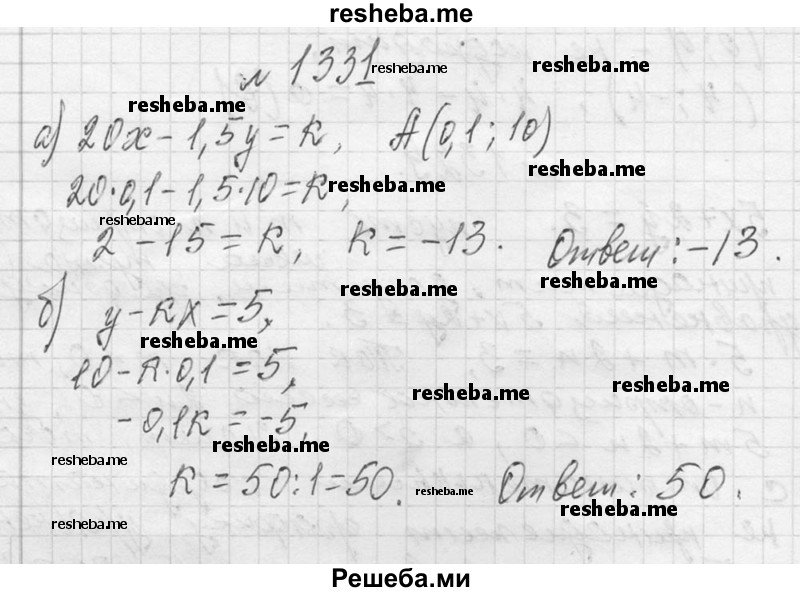 resheba.me
№ 1331 resheba.me resheba.me
resheba.me
а) 20x - 1,5y = k, A(0,1; 10)
resheba.me
20·0,1 - 1,5·10 = k, resheba.me
resheba.me
2 - 15 = k, k = -13. Ответ: -13.
resheba.me resheba.me
б) y - kx = 5,
resheba.me
10 - k·0,1 = 5,
resheba.me resheba.me
-0,1k = -5,
resheba.me
resheba.me
k = 50:1 = 50. resheba.me Ответ: 50.
resheba.me
resheba.me
Решеба.ми